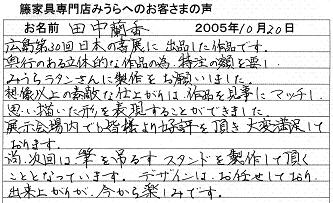 籐家具専門店みうらへのお客さまの声
お名前 田中蘭香 2005年10月20日
広島第30回日本の書展に出品した作品です。
奥行のある立体的な作品の為、特注の額を要し、
みうらラタンさんに製作をお願いしました。
想像以上の素敵な仕上がりは、作品と見事にマッチし、
思い描いた形を表現することができました。
展示会場内でも皆様より好評を頂き大変満足して
おります。
尚、次回は筆を吊るすスタンドを製作して頂く
こととなっています。デザインはお任せしており、
出来上がりが、今から楽しみです。